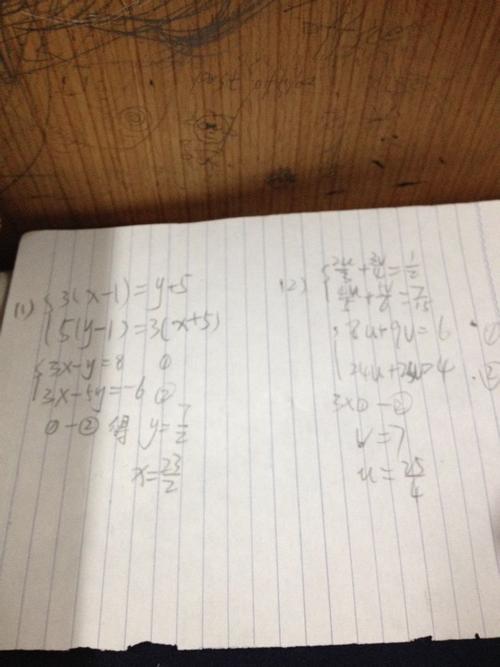 post office
(1) { 3(x-1)=y+5
5(y-1)=3(x+5)
{ 3x-y=8 ①
3x-5y=-6 ②
①-② 得 y=7/2
x=23/2
(2) { 2u/3+3v/4=1/2
4u/5+5v/6=7/15
{ 8u+9v=6 ①
24u+25v=4 ②
3×①-②
v=7
u=25/4